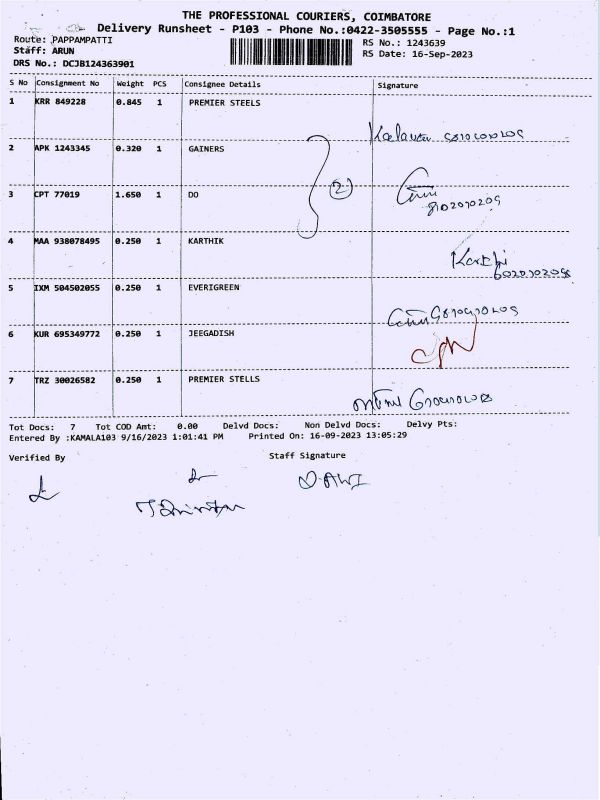 THE PROFESSIONAL COURIERS, COIMBATORE
Delivery Runsheet - P103 - Phone No.:0422-3505555 - Page No.:1
Route: PAPPAMPATTI
RS No.: 1243639
Staff: ARUN
RS Date: 16-Sep-2023
DRS No.: DCJB124363901
S No Consignment No Weight PCS Consignee Details Signature
1 KRR 849228 0.845 1 PREMIER STEELS
2 APK 1243345 0.320 1 GAINERS
2
3 CPT 77019 1.650 1 DO
4 MAA 938078495 0.250 1 KARTHIK
5 IXM 504502055 0.250 1 EVERIGREEN
6 KUR 695349772 0.250 1 JEEGADISH
7 TRZ 30026582 0.250 1 PREMIER STELLS
Tot Docs: 7 Tot COD Amt: 0.00 Delvd Docs: Non Delvd Docs: Delvy Pts:
Entered By :KAMALA103 9/16/2023 1:01:41 PM Printed On: 16-09-2023 13:05:29
Verified By Staff Signature